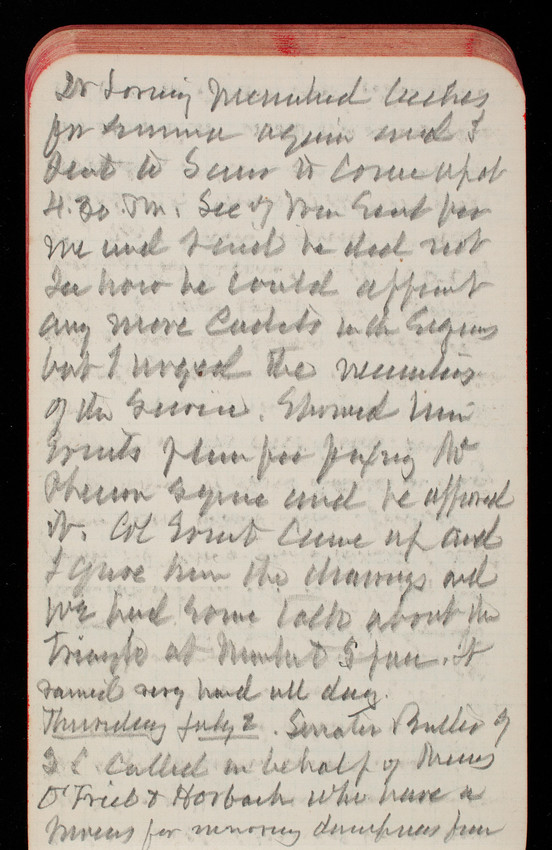 Dr Loring
for Emma again and I
sent to Scier to come up at
4.30 PM. Sec of War sent for
me and said he did not
see how he could appoint
any more Cadets in the Engrs
but I urged the necessities
of the Service. Showed him
Ernsts plan for fixing
Square and he approved
it. Col Ernst came up and
I gave him the drawings and
we had some talk about the
triangle at Market Space. It
rained very hard all day.
Thursday July 2. Senator Butler of
S C called on behalf of Messrs
& Horbach who have a
process for removing dampness from